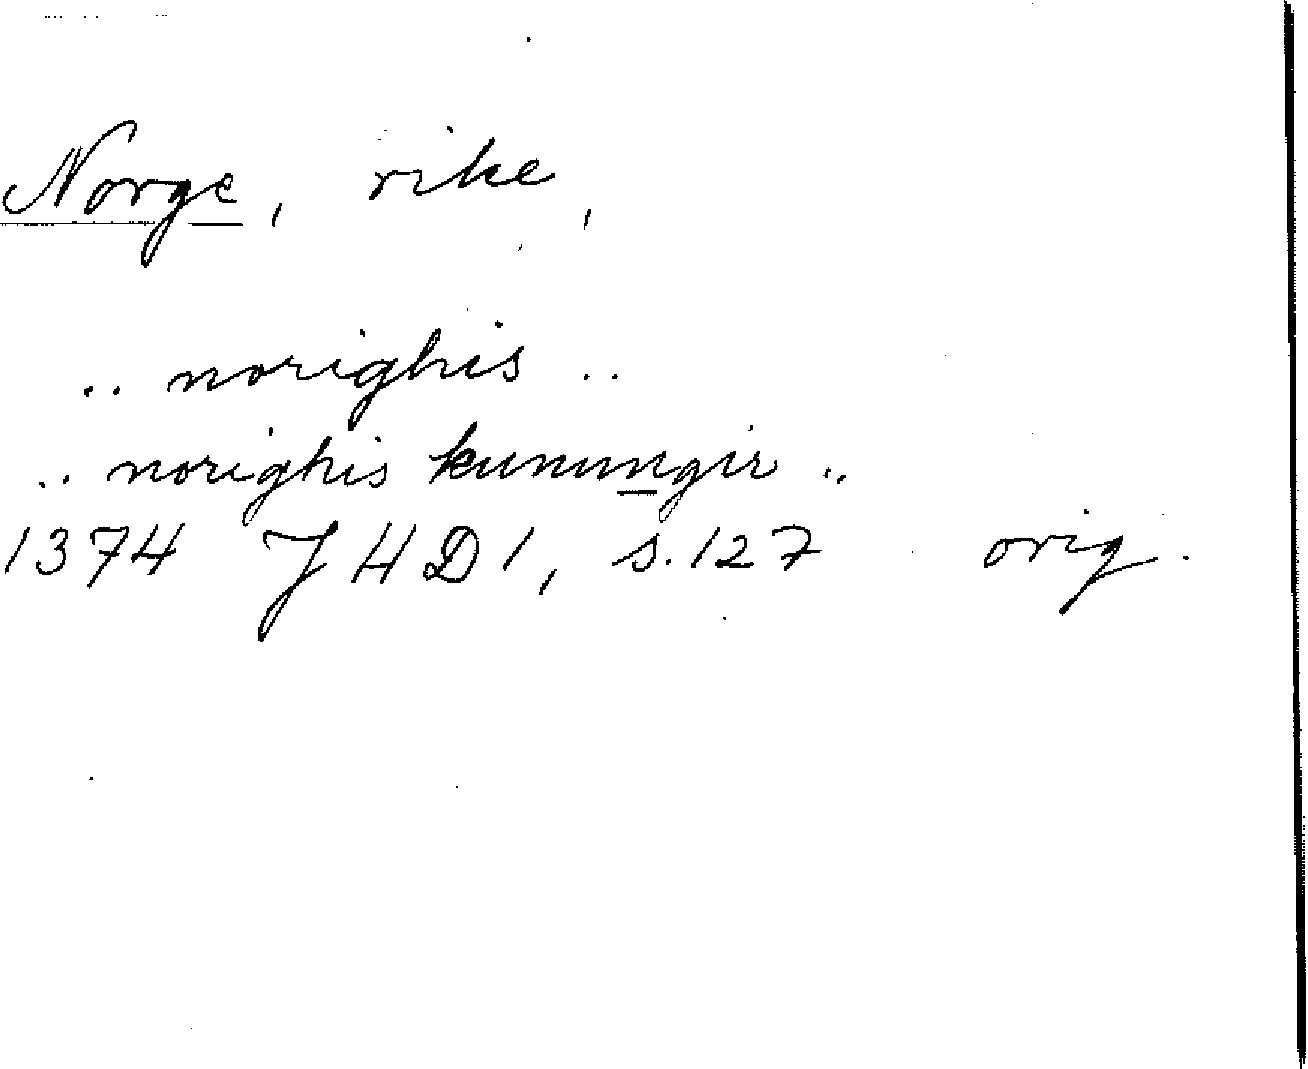 Norge, rike,
.. norighis ..
.. norighis kunungir ..
1374 JHD1, s.127 orig.